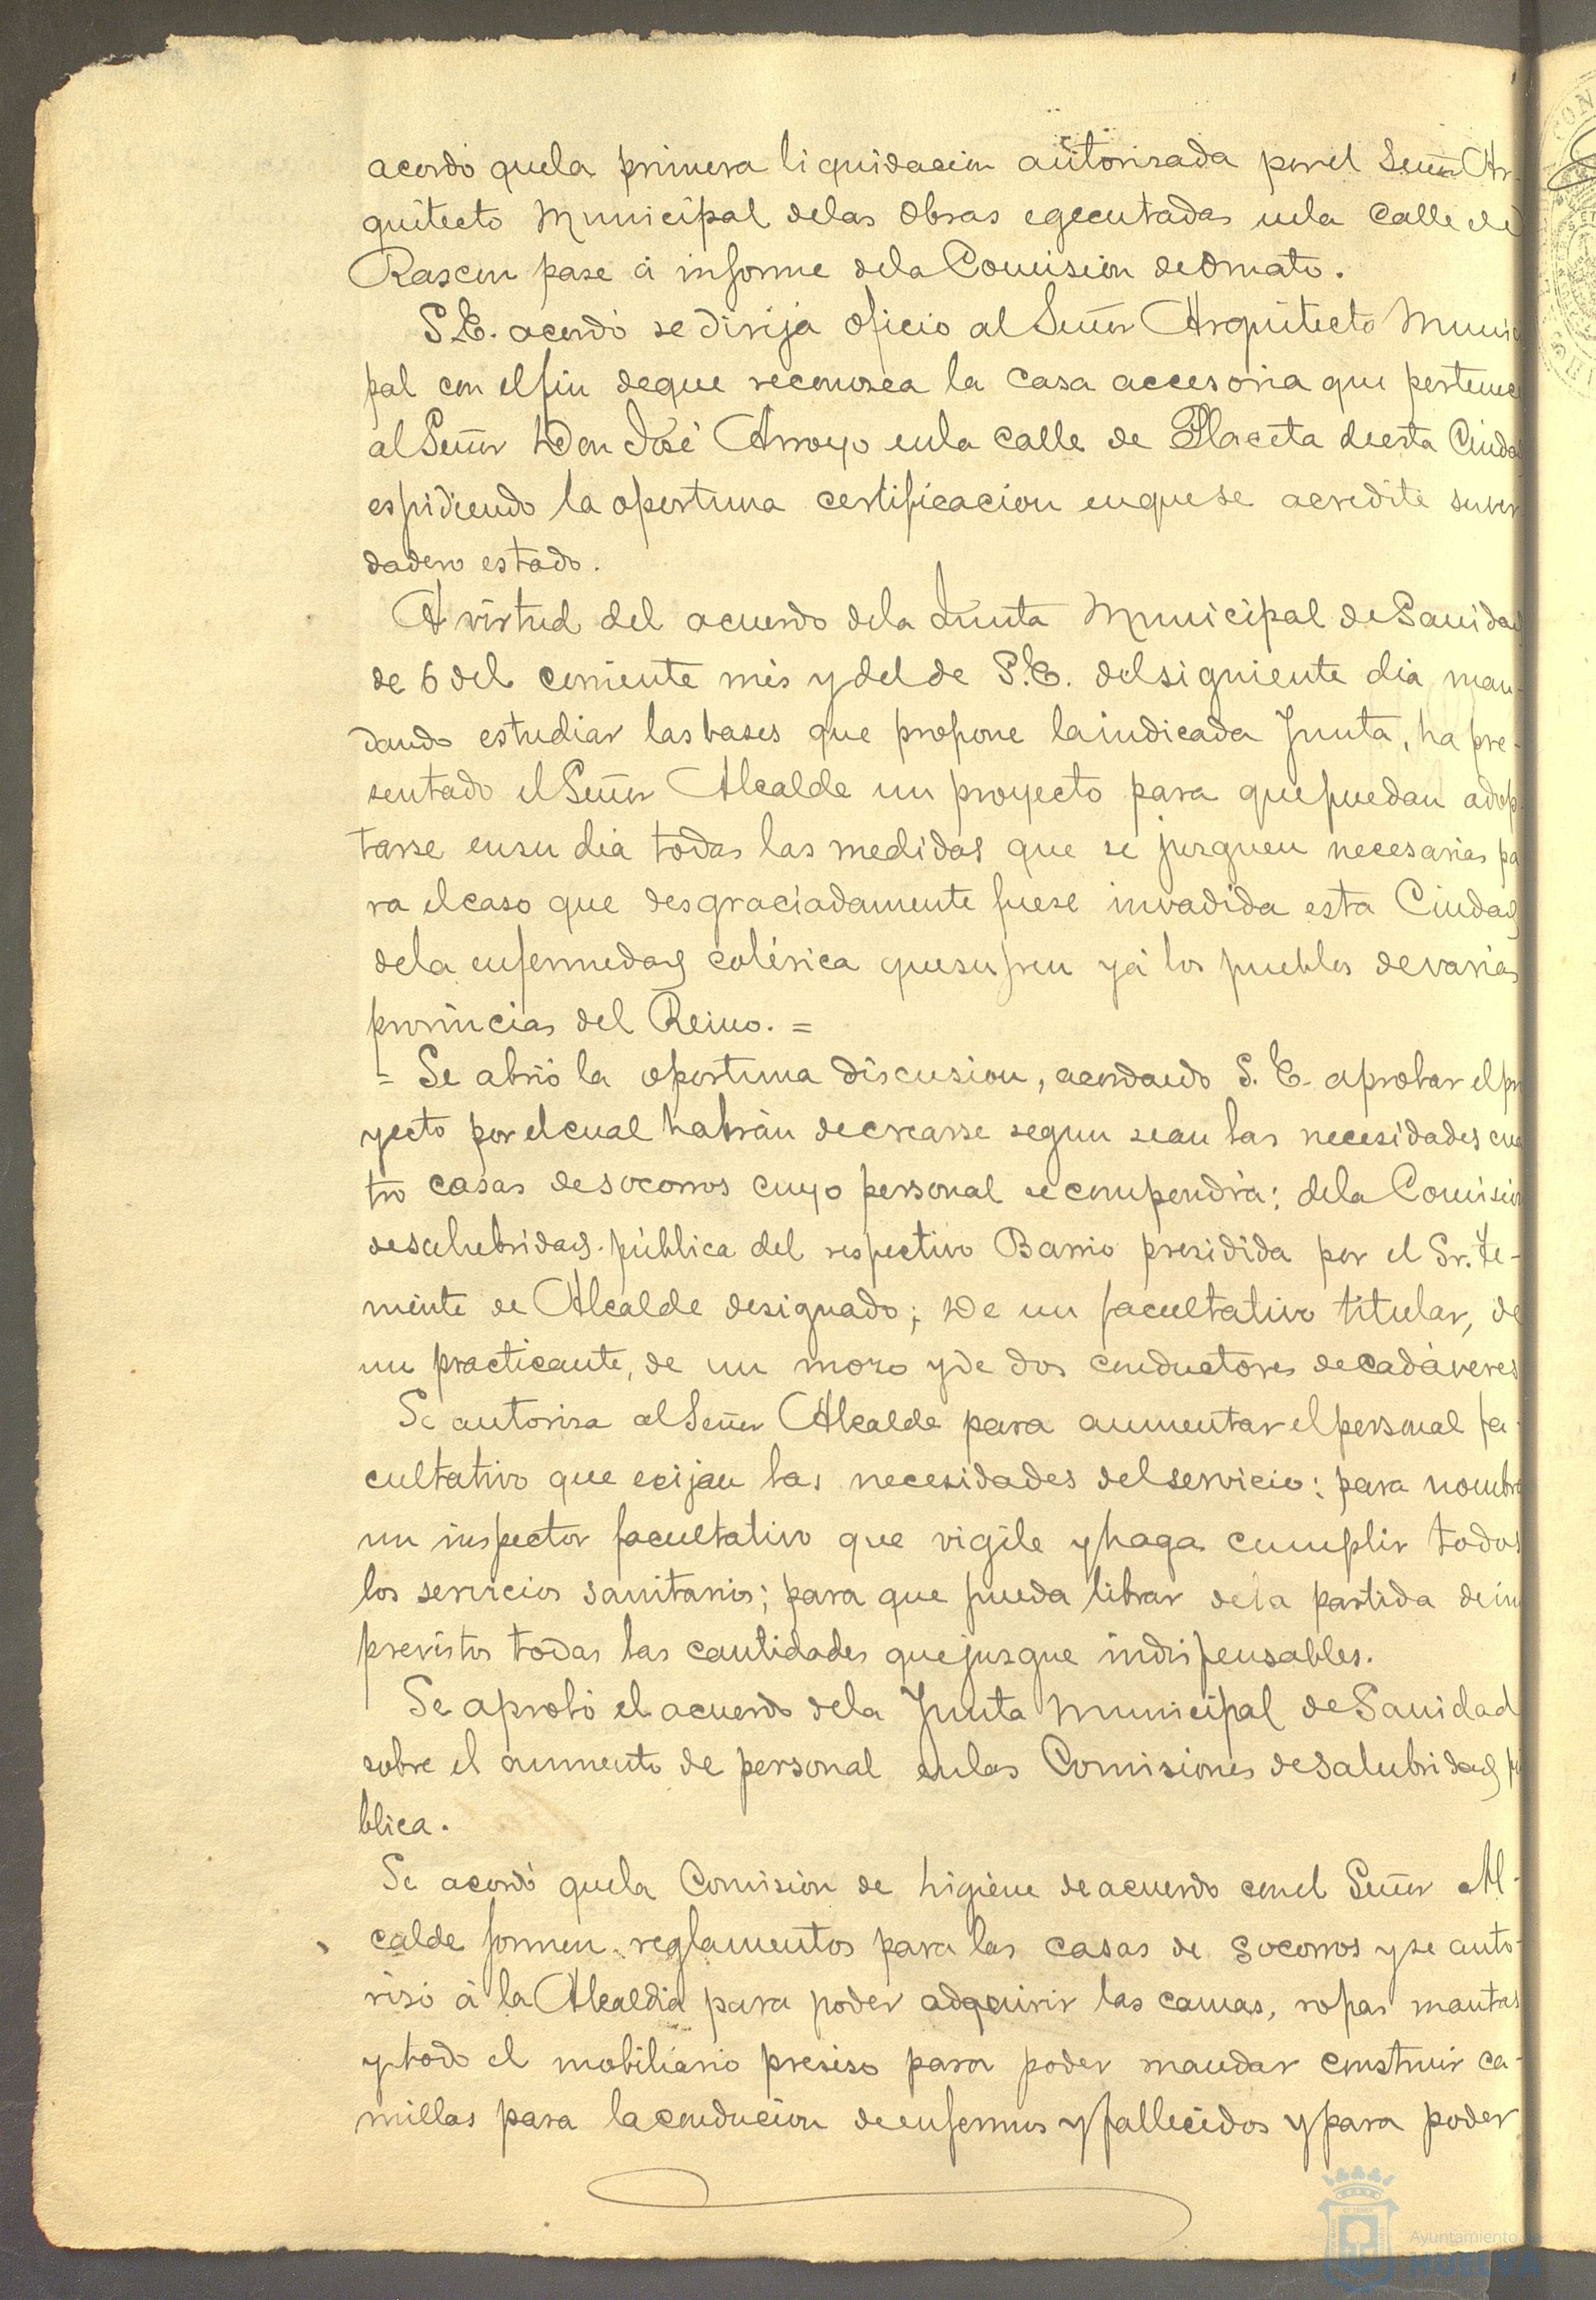 acordó quela primera liquidacion autorisada porel Señor Ar-
quitecto Municipal delas obras egecutadas enla calle del
Rascon pase á informe dela Comision deOrnato.
S.E. acordó se dirija oficio al Señor Arquitecto Munici
pal con elfin deque reconosca la casa accesoria que pertenece
al Señor Don José Arroyo enla calle de Placeta deesta Ciudad
espidiendo la oportuna certificacion enquese acredite suver
dadero estado.
A virtud del acuerdo dela Junta Municipal deSanidad
de 6 del corriente mes ydelde S.E. delsiguiente dia man-
dando estudiar lasbases que propone laindicada Junta, ha pre-
sentado elSeñor Alcalde un proyecto para quepuedan adop
tarse ensu dia todas las medidas que se jusguen necesarias pa
ra elcaso que desgraciadamente fuese invadida esta Ciudad
dela enfermedad colérica quesufren yá los pueblos devarias
provincias del Reino. =
= Se abrió la oportuna discusion, acordando S.E. aprobar elpro
yecto por elcual habrán decrearse segun sean las necesidades cua
tro casas desocorros cuyo personal se compondrá: dela Comision
desalubridad pública del respectivo Barrio presidida por el Sr. Te-
niente de Alcalde designado; De un facultativo titular, de
un practicante, de un moso yde dos conductores decadáveres
Se autorisa alSeñor Alcalde para aumentar elpersonal fa-
cultativo que ecijan las necesidades delservicio: para nombra
un inspector facultativo que vigile yhaga cumplir todos
los servicios sanitarios; para que pueda librar dela partida deim
previstos todas las cantidades quejusgue indispensables.
Se aprobó el acuerdo dela Junta Municipal deSanidad
sobre el aumento de personal enlas Comisiones desalubridad pú
blica.
Se acordó quela Comision de higiene deacuerdo conel Señor Al-
calde formen reglamentos para las casas de socorros yse auto-
risó á la Alcaldia para poder adquirir las camas, ropas mantas
ytodo el mobiliario presiso para poder mandar construir ca-
millas para laconducion deenfermos yfallecidos ypara poder
Ayuntamiento de
HUELVA